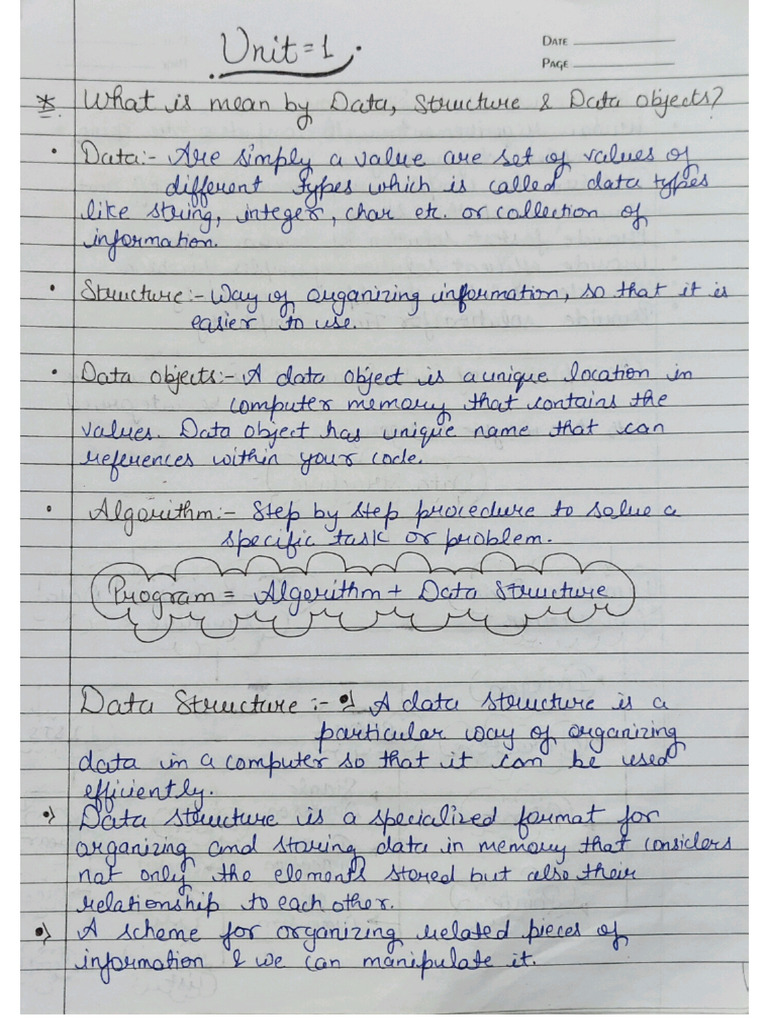 Unit = 1.
DATE
PAGE
* What is mean by Data, Structure & Data Objects?
• Data:- Are simply a value are set of values of
different types which is called data types
like string, integer, char etc. or collection of
information.
• Structure:- Way of organizing information, so that it is
easier to use.
• Data objects:- A data object is a unique location in
computer memory that contains the
values. Data object has unique name that can
references within your code.
• Algorithm:- Step by step procedure to solve a
specific task or problem.
Program = Algorithm + Data Structure
Data Structure :- •) A data structure is a
particular way of organizing
data in a computer so that it can be used
efficiently.
•) Data structure is a specialized format for
organizing and storing data in memory that considers
not only the elements stored but also their
relationship to each other.
•) A scheme for organizing related pieces of
information & we can manipulate it.